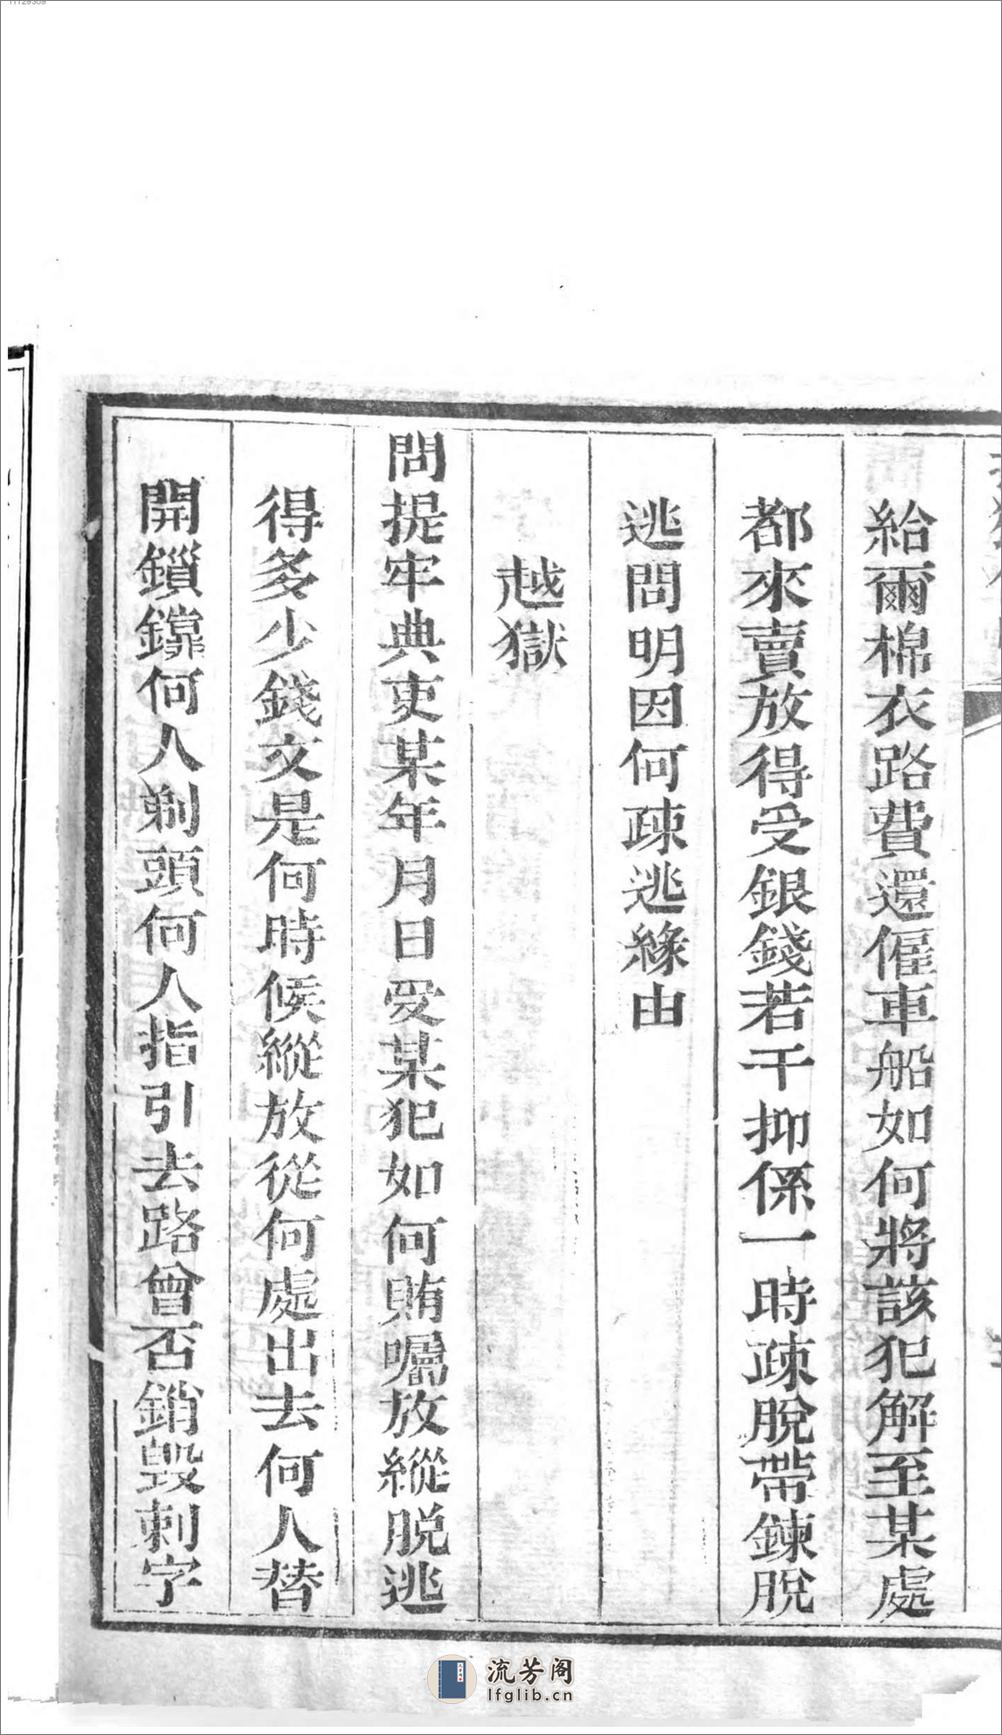 給爾棉衣路費還僱車船如何將該犯解至某處
都來賣放得受銀錢若干抑係一時疎脫帶鍊脫
逃問明因何疎逃緣由
越獄
問提牢典吏某年月日受某犯如何賄囑放縱脱逃
得多少錢文是何時候縱放從何處出去何人替
開鎖鐐何人剃頭何人指引去路曾否銷毀刺字
流芳阁
lfglib.cn